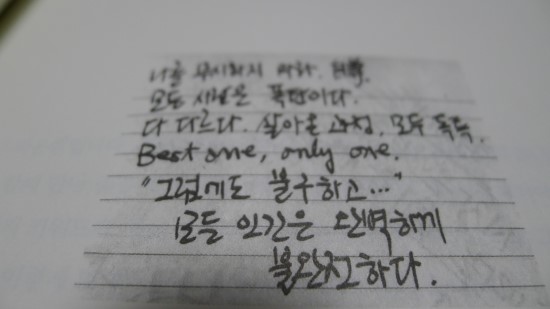 나를 무시하지 마라.
모든 사람은 폭탄이다.
다 다르다. 살아온 과정, 모두 독특.
Best one, only one.
"그럼에도 불구하고..."
모든 인간은 완벽하게
불완전하다.